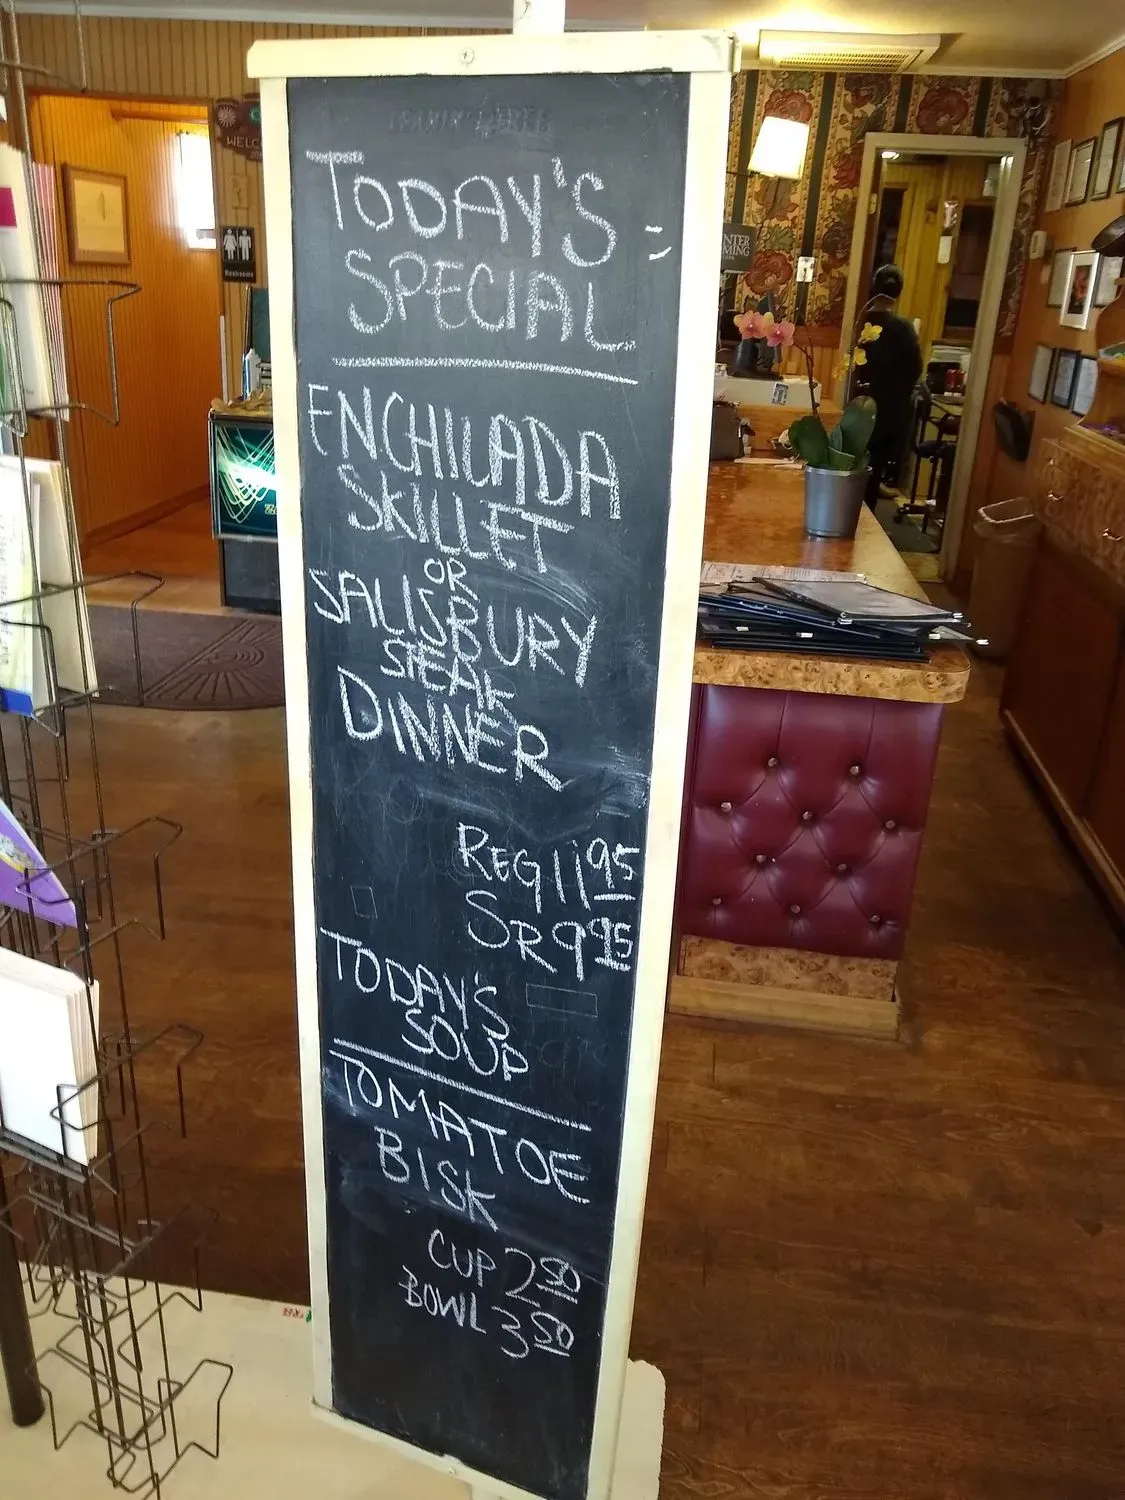 TODAY'S
SPECIAL
ENCHILADA
SKILLET
OR
SALISBURY
STEAK
DINNER
REG 11 95
SR 9 95
TODAY'S
SOUP
TOMATOE
BISK
CUP 2 50
BOWL 3 50
Restrooms